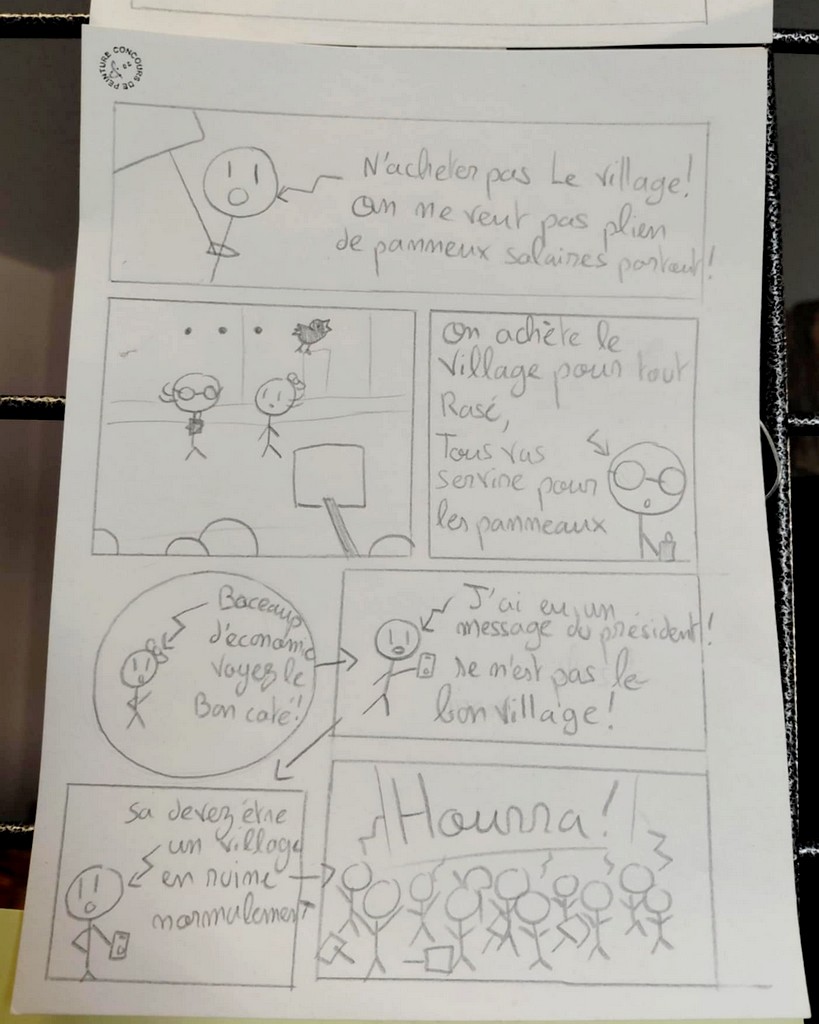 CONCOURS DE PEINTURE
N'acheter pas Le village!
On ne veut pas plien
de pammeux salaires partout!
• • •
On achète le
village pour tout
Rasé,
Tous vas
servire pour
les pammeaux
Baceaup
d'économi
voyez le
Bon caté!
J'ai eu un
message du président!
se n'est pas le
bon village!
sa devez être
un village
en ruine
normalement
Hourra!